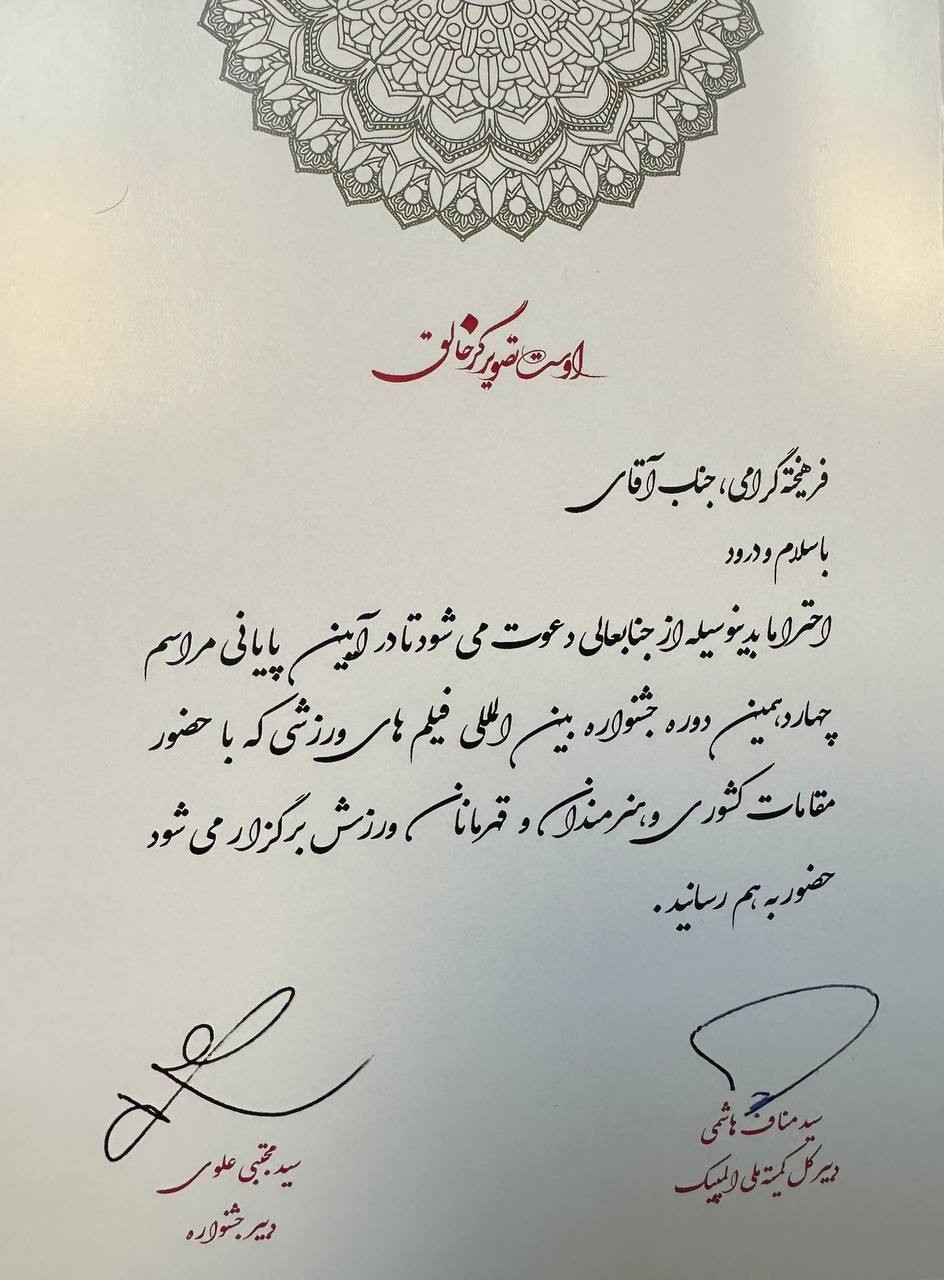 اوست تصویرگر خالق
فرهیخته گرامی، جناب آقای
با سلام و درود
احتراما بدینوسیله از جنابعالی دعوت می شود تا در آیین پایانی مراسم
چهاردهمین دوره جشنواره بین المللی فیلم های ورزشی که با حضور
مقامات کشوری و هنرمندان و قهرمانان ورزش برگزار می شود
حضور به هم رسانید.
سید مناف هاشمی
دبیر کل کمیته ملی المپیک
سید مجتبی علوی
دبیر جشنواره